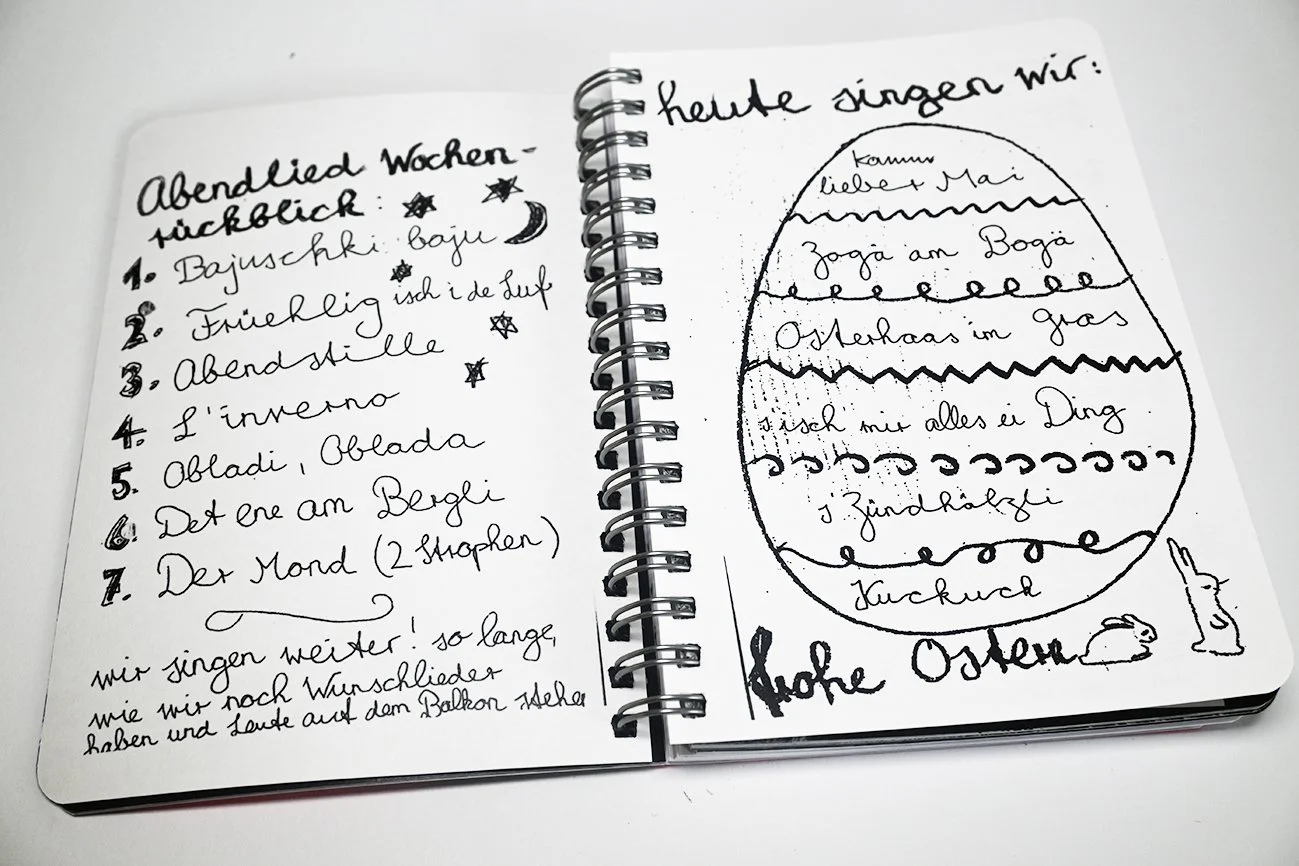 Abendlied Wochen-
rückblick:
1. Bajuschki baju
2. Früehlig isch i de Luft
3. Abendstille
4. L'inverno
5. Obladi, Oblada
6. Det ene am Bergli
7. Der Mond (2 Strophen)
wir singen weiter! so lange,
wie wir noch Wunschlieder
haben und Leute auf dem Balkon stehen
heute singen wir:
komm
lieber Mai
Zogä am Bogä
Osterhaas im gras
s'isch mir alles ei Ding
s'Zündhölzli
Kuckuck
frohe Ostern